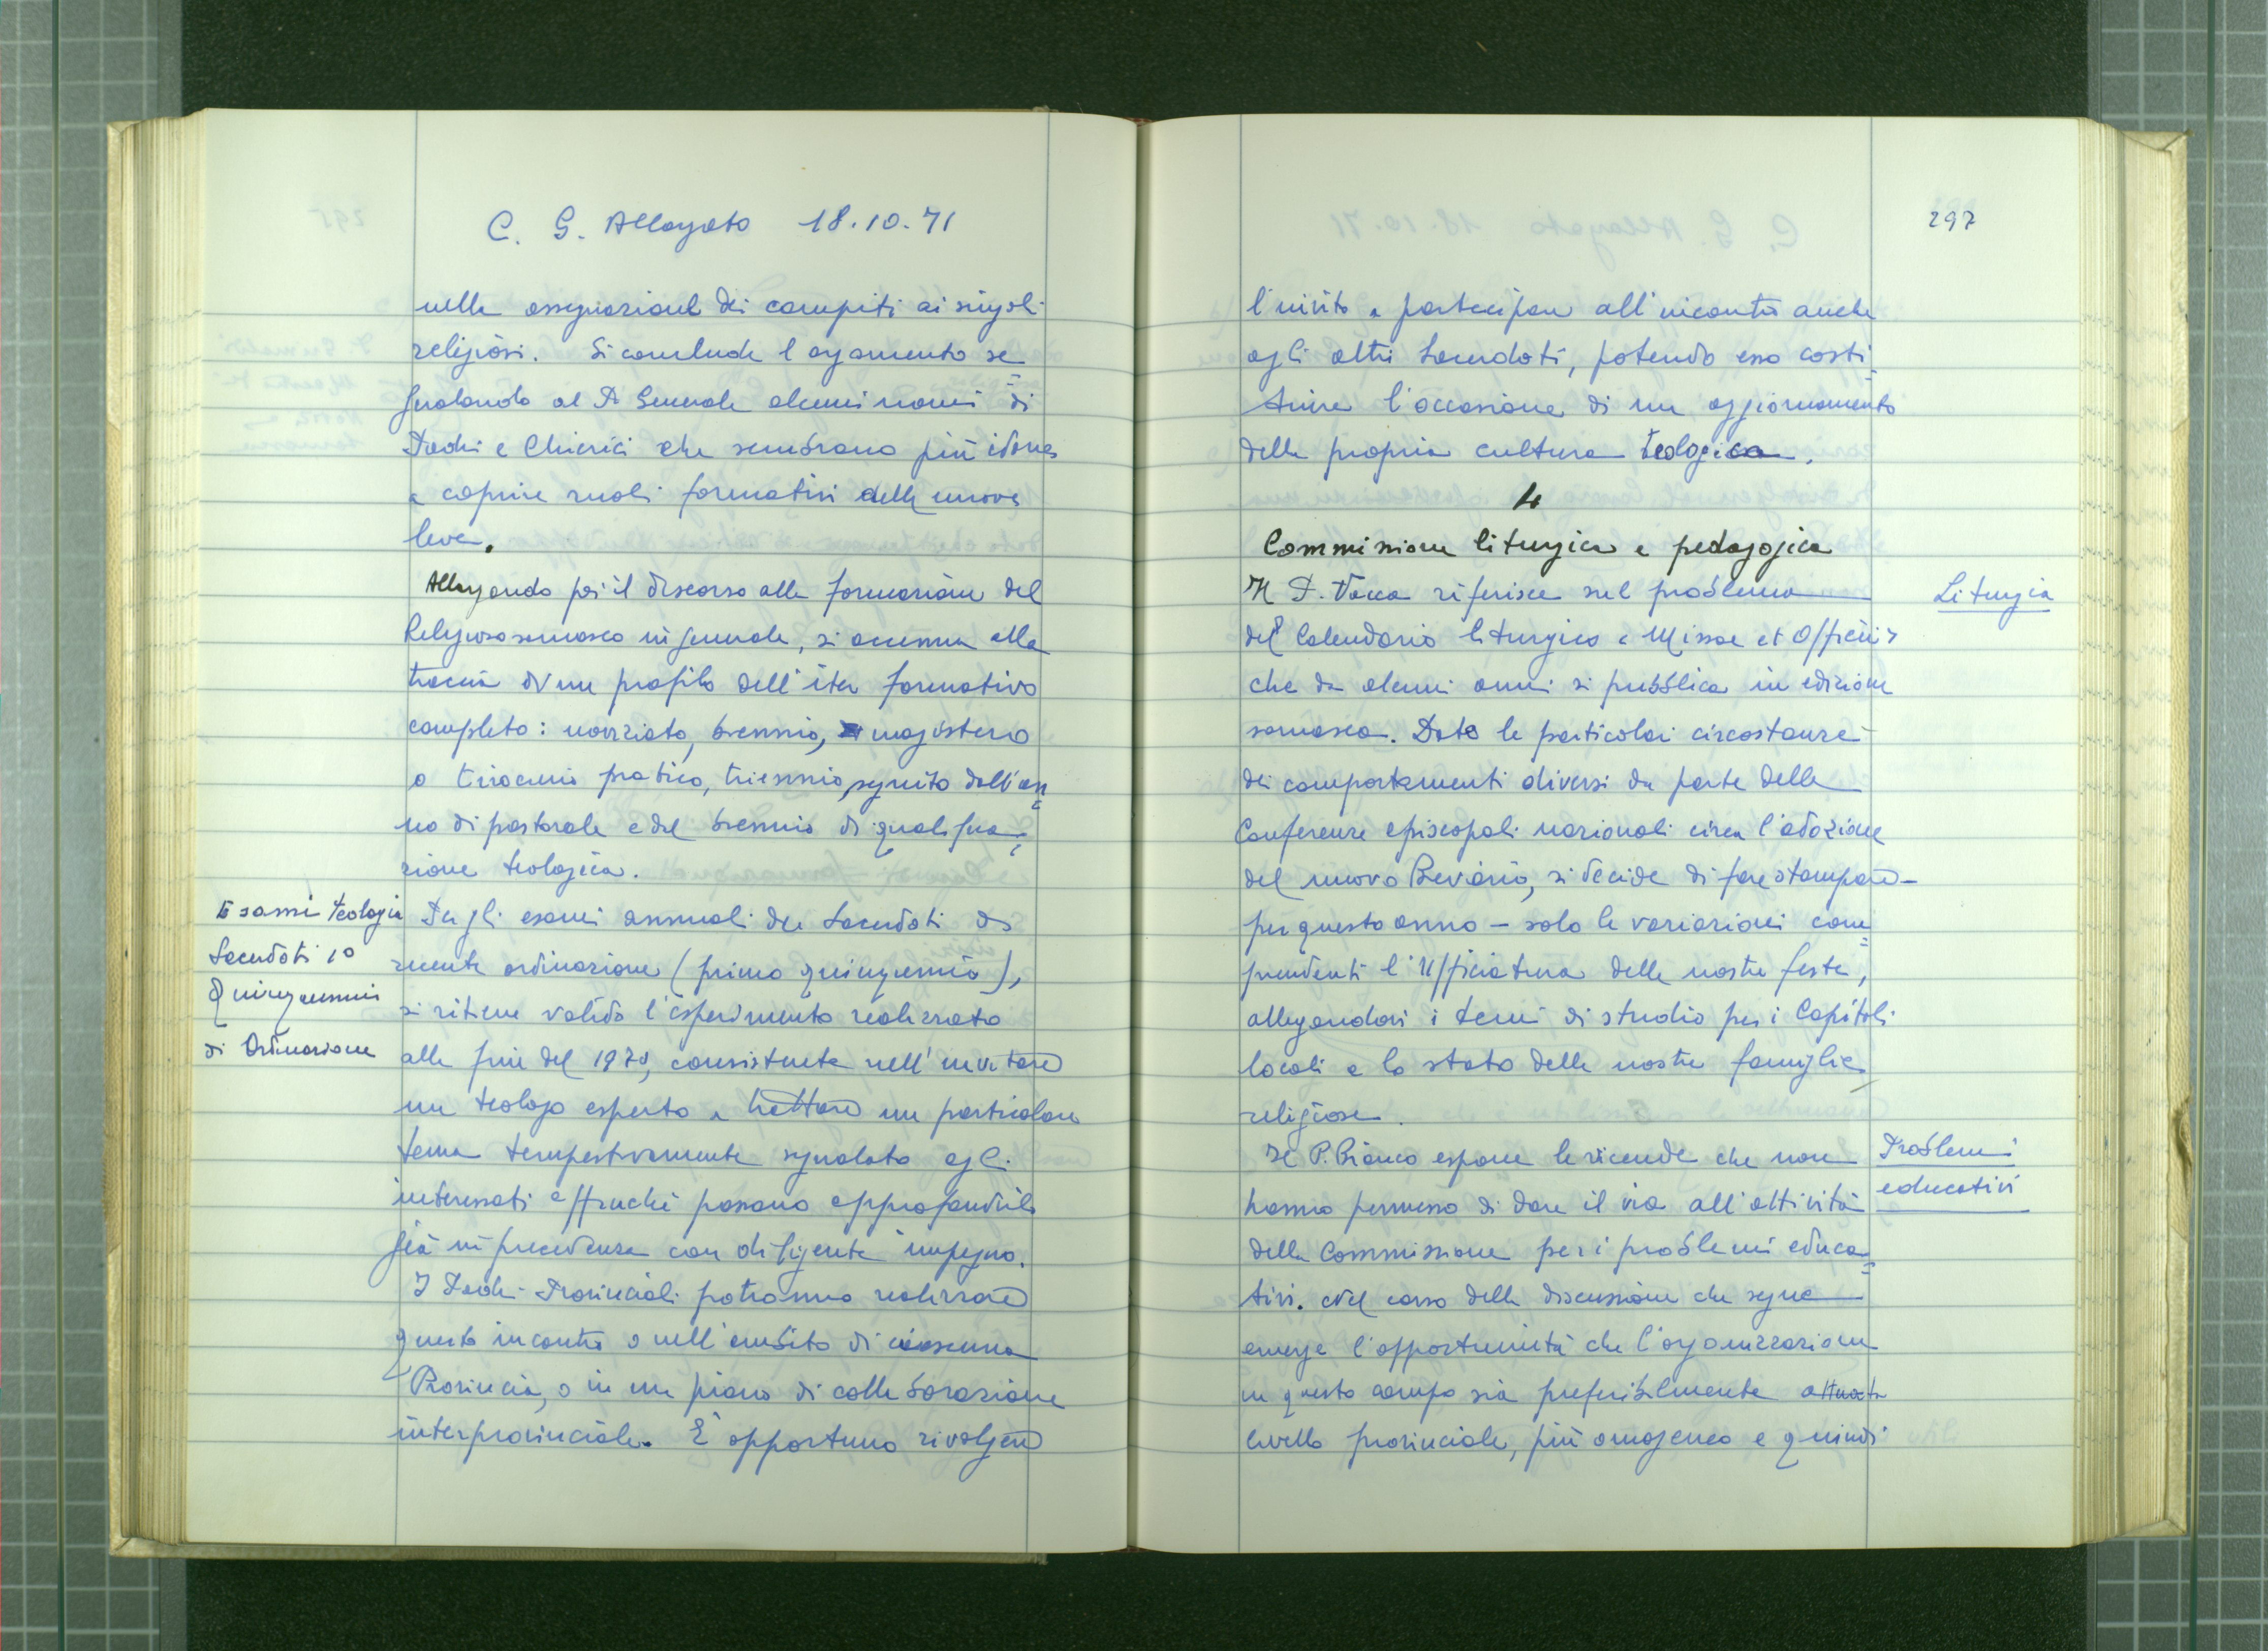 C. G. Allargato 18.10.71
nella assegnazione dei compiti ai singoli
religiosi. Si conclude l'argomento se=
gnalando al P. Generale alcuni nomi di
Padri e Chierici che sembrano più idonei
a coprire ruoli formativi delle nuove
leve.
Allargando poi il discorso alla formazione del
Religioso somasco in generale, si accenna alla
traccia di un profilo dell'iter formativo
completo: noviziato, biennio, magistero
o tirocinio pratico, triennio, seguito dall'an=
no di pastorale e del biennio di qualifica=
zione teologica.
Esami Teologia
Sacerdoti 1°
Quinquennio
di Ordinazione
Per gli esami annuali dei Sacerdoti di
recente ordinazione (primo quinquennio),
si ritiene valido l'esperimento realizzato
alla fine del 1970, consistente nell'invitare
un teologo esperto a trattare un particolare
tema tempestivamente segnalato agli
interessati affinché possano approfondirlo
già in precedenza con diligente impegno.
I Padri Provinciali potranno realizzare
questo incontro o nell'ambito di ciascuna
Provincia, o in un piano di collaborazione
interprovinciale. È opportuno rivolgere
297
l'invito a partecipare all'incontro anche
agli altri Sacerdoti, potendo esso costi=
tuire l'occasione di un aggiornamento
della propria cultura teologica.
4
Commissione liturgica e pedagogica
Liturgia
Il P. Vacca riferisce sul problema
del Calendario liturgico e Missae et Officii
che da alcuni anni si pubblica in edizione
somasca. Date le particolari circostanze
dei comportamenti diversi da parte delle
Conferenze episcopali nazionali circa l'adozione
del nuovo Breviario, si decide di fare stampare –
per questo anno – solo le variazioni com=
prendenti l'Ufficiatura delle nostre feste,
allegandovi i temi di studio per i Capitoli
locali e lo stato delle nostre famiglie
religiose.
Problemi
educativi
Il P. Bianco espone le vicende che non
hanno permesso di dare il via all'attività
della Commissione per i problemi educa=
tivi. Nel corso della discussione che segue
emerge l'opportunità che l'organizzazione
in questo campo sia preferibilmente attuata
livello provinciale, più omogeneo e quindi